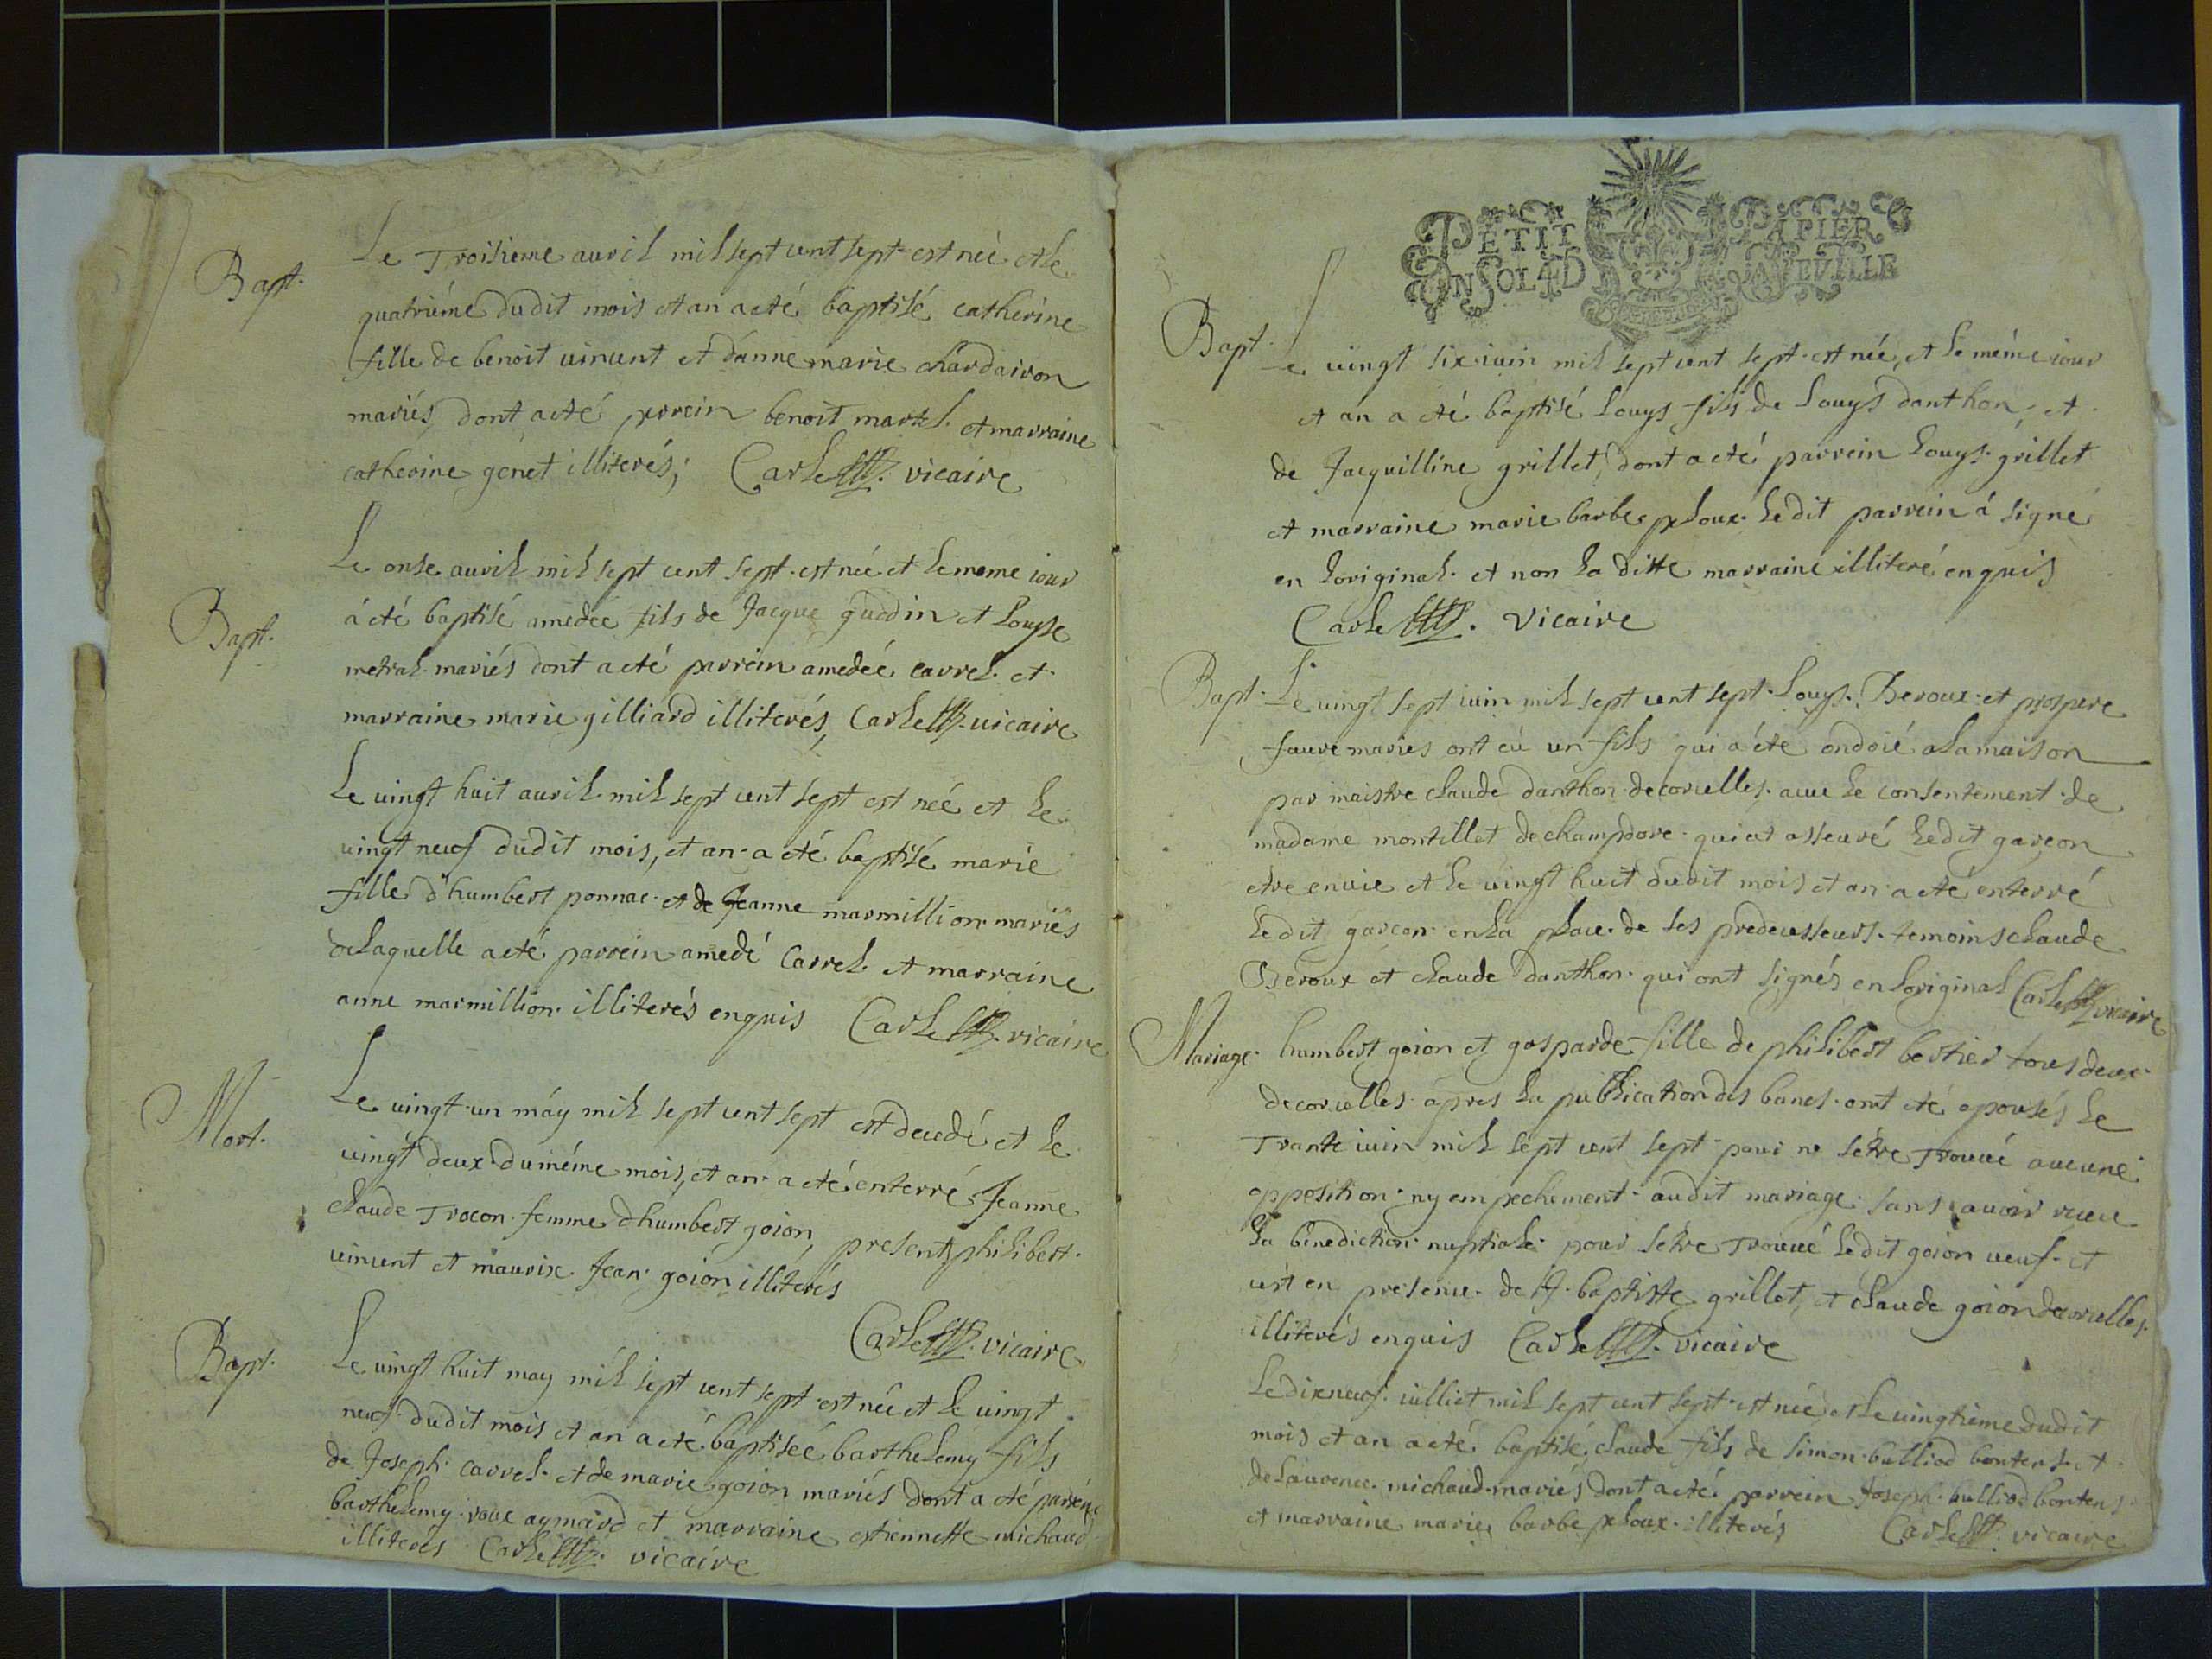 Bapt.
Le Troisieme auril mil sept cent sept est neé et le
quatriéme dudit mois et an a eté baptisé catherine
fille de benoit uincent et d'anne marie chardairon
mariés, dont a eté perrein benoit martel. et marraine
catherine genet illiterés; Carle vicaire
Bapt.
Le onse auril mil sept cent sept. est neé et le meme iour
á eté baptisé amedeé fils de Jacque guddin et Louyse
metral. mariés dont a eté parrein amedeé carrel. et
marraine marie gilliard illiterés, Carle uicaire
Le uingt huit auril mil sept cent sept est neé et le
uingt neuf dudit mois, et an a eté baptisé marie
fille d'humbert ponnac. et de Jeanne marmillion mariés
de laquelle a eté parrein amedé Carrel. et marraine
anne marmillion. illiterés enquis Carle vicaire
Mort.
Le uingt un máy mil sept cent sept est decedé et le
uingt deux du méme mois, et an a eté enterré Jeanne
claude Trocon. femme d'humbert goion, present philibert.
uincent et maurix. Jean. goion illiterés
Carle vicaire
Bapt.
Le uingt huit may mil sept cent sept est neé et le uingt
neuf. dudit mois et an a eté baptiseé barthelemy fils
de Joseph. carrel. et de marie goion mariés dont a eté parrein
barthelemy. roux aymard et marraine estiennette michaud
illiterés Carle vicaire
PETIT PAPIER
UN SOL 4D LA FEVILLE
Bapt.
Le uingt six iuin mil sept cent sept. est neé, et le méme iour
et an a eté baptisé Louys fils de Louys danthon, et
de Jacquilline grillet, dont a eté parrein Louys. grillet
et marraine marie barbe peloux. Ledit parrein á signé
en Loriginal. et non la ditte marraine illiteré enquis
Carle vicaire
Bapt.
Le uingt sept iuin mil sept cent sept. Louys. Beroux. et prospere
faure mariés ont eú un fils qui a éte ondoié a la maison
par maistre claude danthon de corcelles. auec le consentement de
madame montillet de champdore. qui at asseuré ledit garcon
etre en uie et le uingt huit dudit mois et an a eté enterré
ledit garcon. en la place. de ses predecesseurs. temoins claude
Beroux et claude danthon. qui ont signés en Loriginal Carle vicaire
Mariage.
humbert goion et gasparde fille de philibert bertier tous deux.
de corcelles. apres la publication des bancs. ont eté epousés le
Trante iuin mil sept cent sept pour ne sétre Trouué aucune
opposition. ny empechement. audit mariage. sans auoir receu
la benediction. nuptiale. pour sétre Trouué ledit goion ueuf. et
cést en presence. de J. baptiste grillet, et claude goion de corcelles.
illiterés enquis Carle vicaire
Le dixneuf. iulliet mil sept cent sept. est neé et le uingtieme dudit
mois et an a eté baptisé, claude fils de simon bulliod bontens. et
de Laurence. michaud. mariés dont a eté. parrein Joseph. bulliod bontens
et marraine marie, barbe peloux. illiterés Carle vicaire